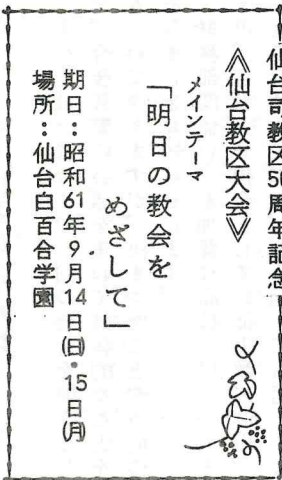 仙台司教区50周年記念
≪仙台教区大会≫
メインテーマ
「明日の教会を
めざして」
期日：昭和61年9月14日(日)・15日(月)
場所：仙台白百合学園